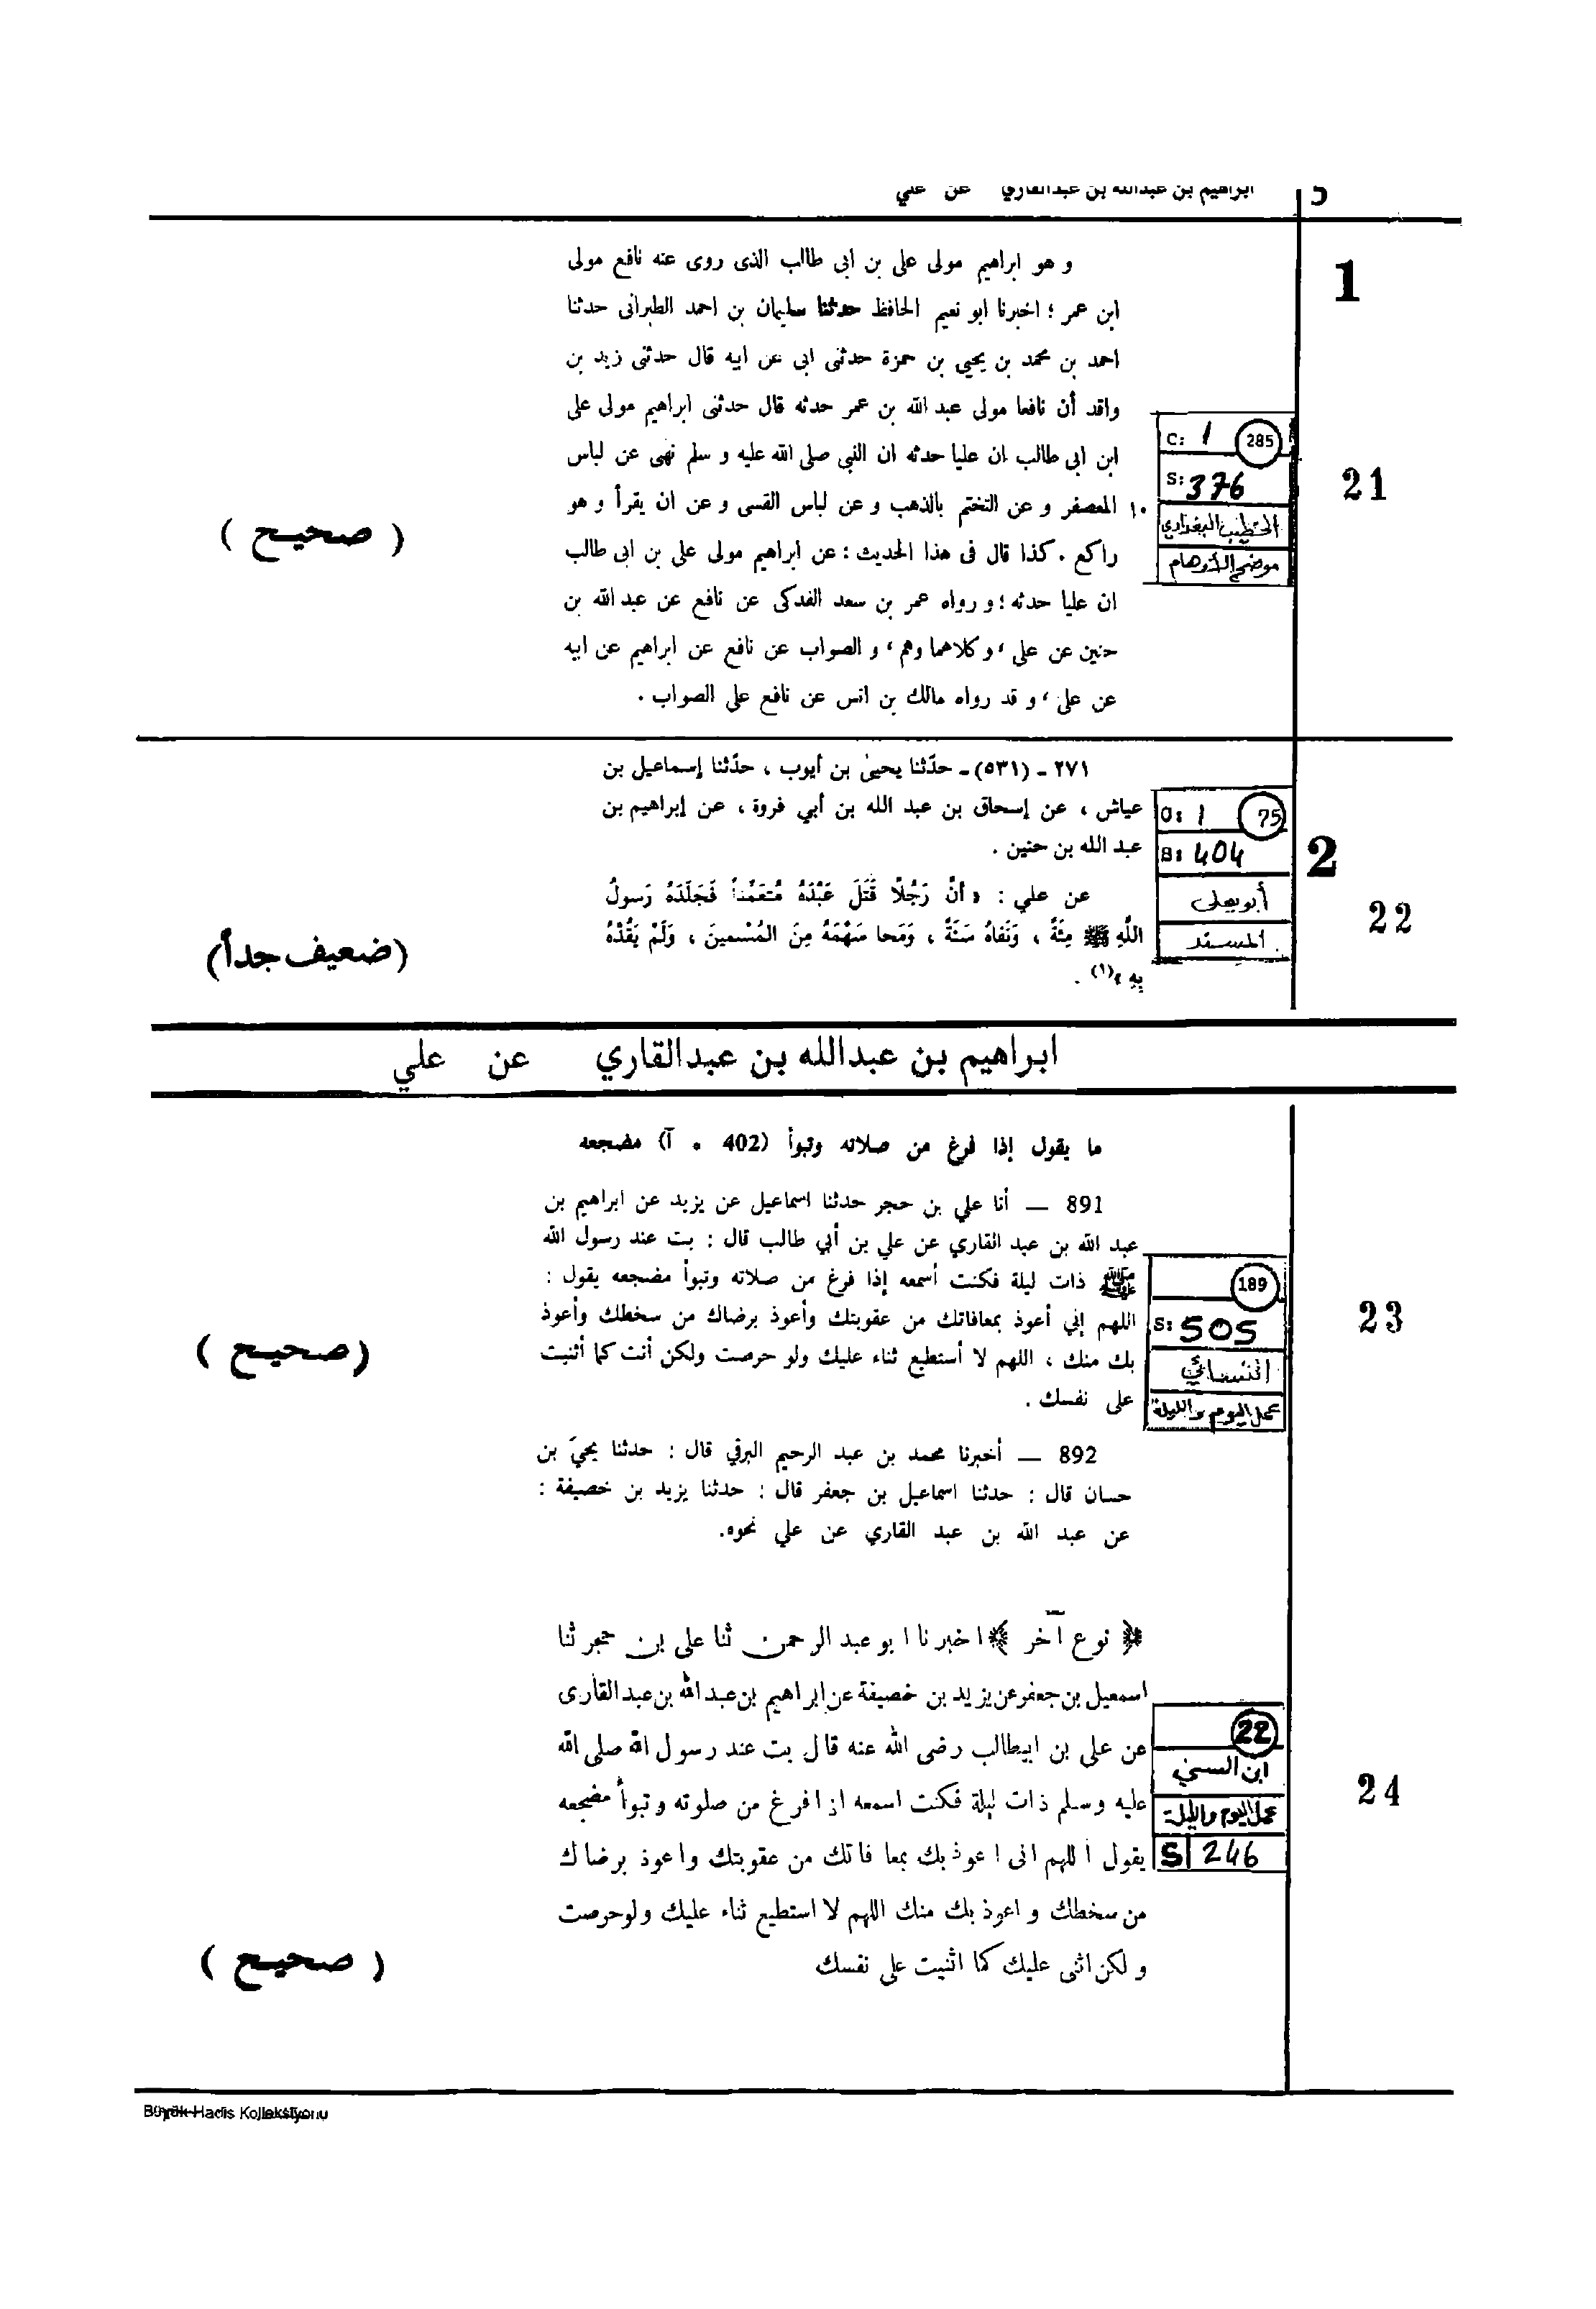 ابراهيم بن عبدالله بن عبدالقاري عن علي
5
1
و هو ابراهيم مولى على بن ابى طالب الذى روى عنه نافع مولى
ابن عمر ؛ اخبرنا ابو نعيم الحافظ حدثنا سليمان بن احمد الطبرانى حدثنا
احمد بن محمد بن يحيى بن حمزة حدثنى ابى عن ابيه قال حدثنى زيد بن
واقد أن نافعا مولى عبد الله بن عمر حدثه قال حدثنى ابراهيم مولى على
ابن ابى طالب ان عليا حدثه ان النبى صلى الله عليه و سلم نهى عن لباس
١٠ المعصفر و عن التختم بالذهب و عن لباس القسى و عن ان يقرأ و هو
راكع . كذا قال فى هذا الحديث : عن ابراهيم مولى على بن ابى طالب
ان عليا حدثه ؛ و رواه عمر بن سعد الفدكى عن نافع عن عبد الله بن
حنين عن على ، و كلاهما وهم ، و الصواب عن نافع عن ابراهيم عن ابيه
عن على ، و قد رواه مالك بن انس عن نافع على الصواب .
C: 1 285
S: 376
الخطيب البغدادي
موضح الأوهام
21
( صحيح )
٢٧١ ـ (٥٣١) ـ حدّثنا يحيىٰ بن أيوب ، حدّثنا إسماعيل بن
عياش ، عن إسحاق بن عبد الله بن أبي فروة ، عن إبراهيم بن
عبد الله بن حنين .
عن علي : « أنَّ رَجُلًا قَتَلَ عَبْدَهُ مُتَعَمِّداً فَجَلَدَهُ رَسولُ
اللَّهِ ﷺ مِئَةً ، وَنَفاهُ سَنَةً ، وَمَحا سَهْمَهُ مِنَ المُسْمينَ ، وَلَمْ يَقُدْهُ
بِهِ »(١) .
C: 1 75
S: 404
أبو يعلى
المسند
2
22
(ضعيف جداً)
ابراهيم بن عبدالله بن عبدالقاري عن علي
ما يقول إذا فرغ من صلاته وتبوأ (402 . آ) مضجعه
891 — أنا علي بن حجر حدثنا اسماعيل عن يزيد عن ابراهيم بن
عبد الله بن عبد القاري عن علي بن أبي طالب قال : بت عند رسول الله
ﷺ ذات ليلة فكنت أسمعه إذا فرغ من صلاته وتبوأ مضجعه يقول :
اللهم إني أعوذ بمعافاتك من عقوبتك وأعوذ برضاك من سخطك وأعوذ
بك منك ، اللهم لا أستطيع ثناء عليك ولو حرصت ولكن أنت كما أثنيت
على نفسك .
892 — أخبرنا محمد بن عبد الرحيم البرقي قال : حدثنا يحيىَ بن
حسان قال : حدثنا اسماعيل بن جعفر قال : حدثنا يزيد بن خصيفة :
عن عبد الله بن عبد القاري عن علي نحوه.
189
S: 505
النسائي
عمل اليوم والليلة
23
(صحيح )
﴿ نوع آخر ﴾ اخبرنا ابو عبد الرحمن ثنا على بن حجر ثنا
اسمعيل بن جعفر عن يزيد بن خصيفة عن ابراهيم بن عبد الله بن عبد القارى
عن على بن ابيطالب رضى الله عنه قال بت عند رسول الله صلى الله
عليه وسلم ذات ليلة فكنت اسمعه اذا فرغ من صلوته وتبوأ مضجعه
يقول اللهم انى اعوذ بك بمعافاتك من عقوبتك واعوذ برضاك
من سخطك و اعوذ بك منك اللهم لا استطيع ثناء عليك ولو حرصت
و لكن اثنى عليك كما اثنيت على نفسك
22
ابن السني
عمل اليوم والليلة
S 246
24
( صحيح )
Büyük Hadis Kolleksiyonu